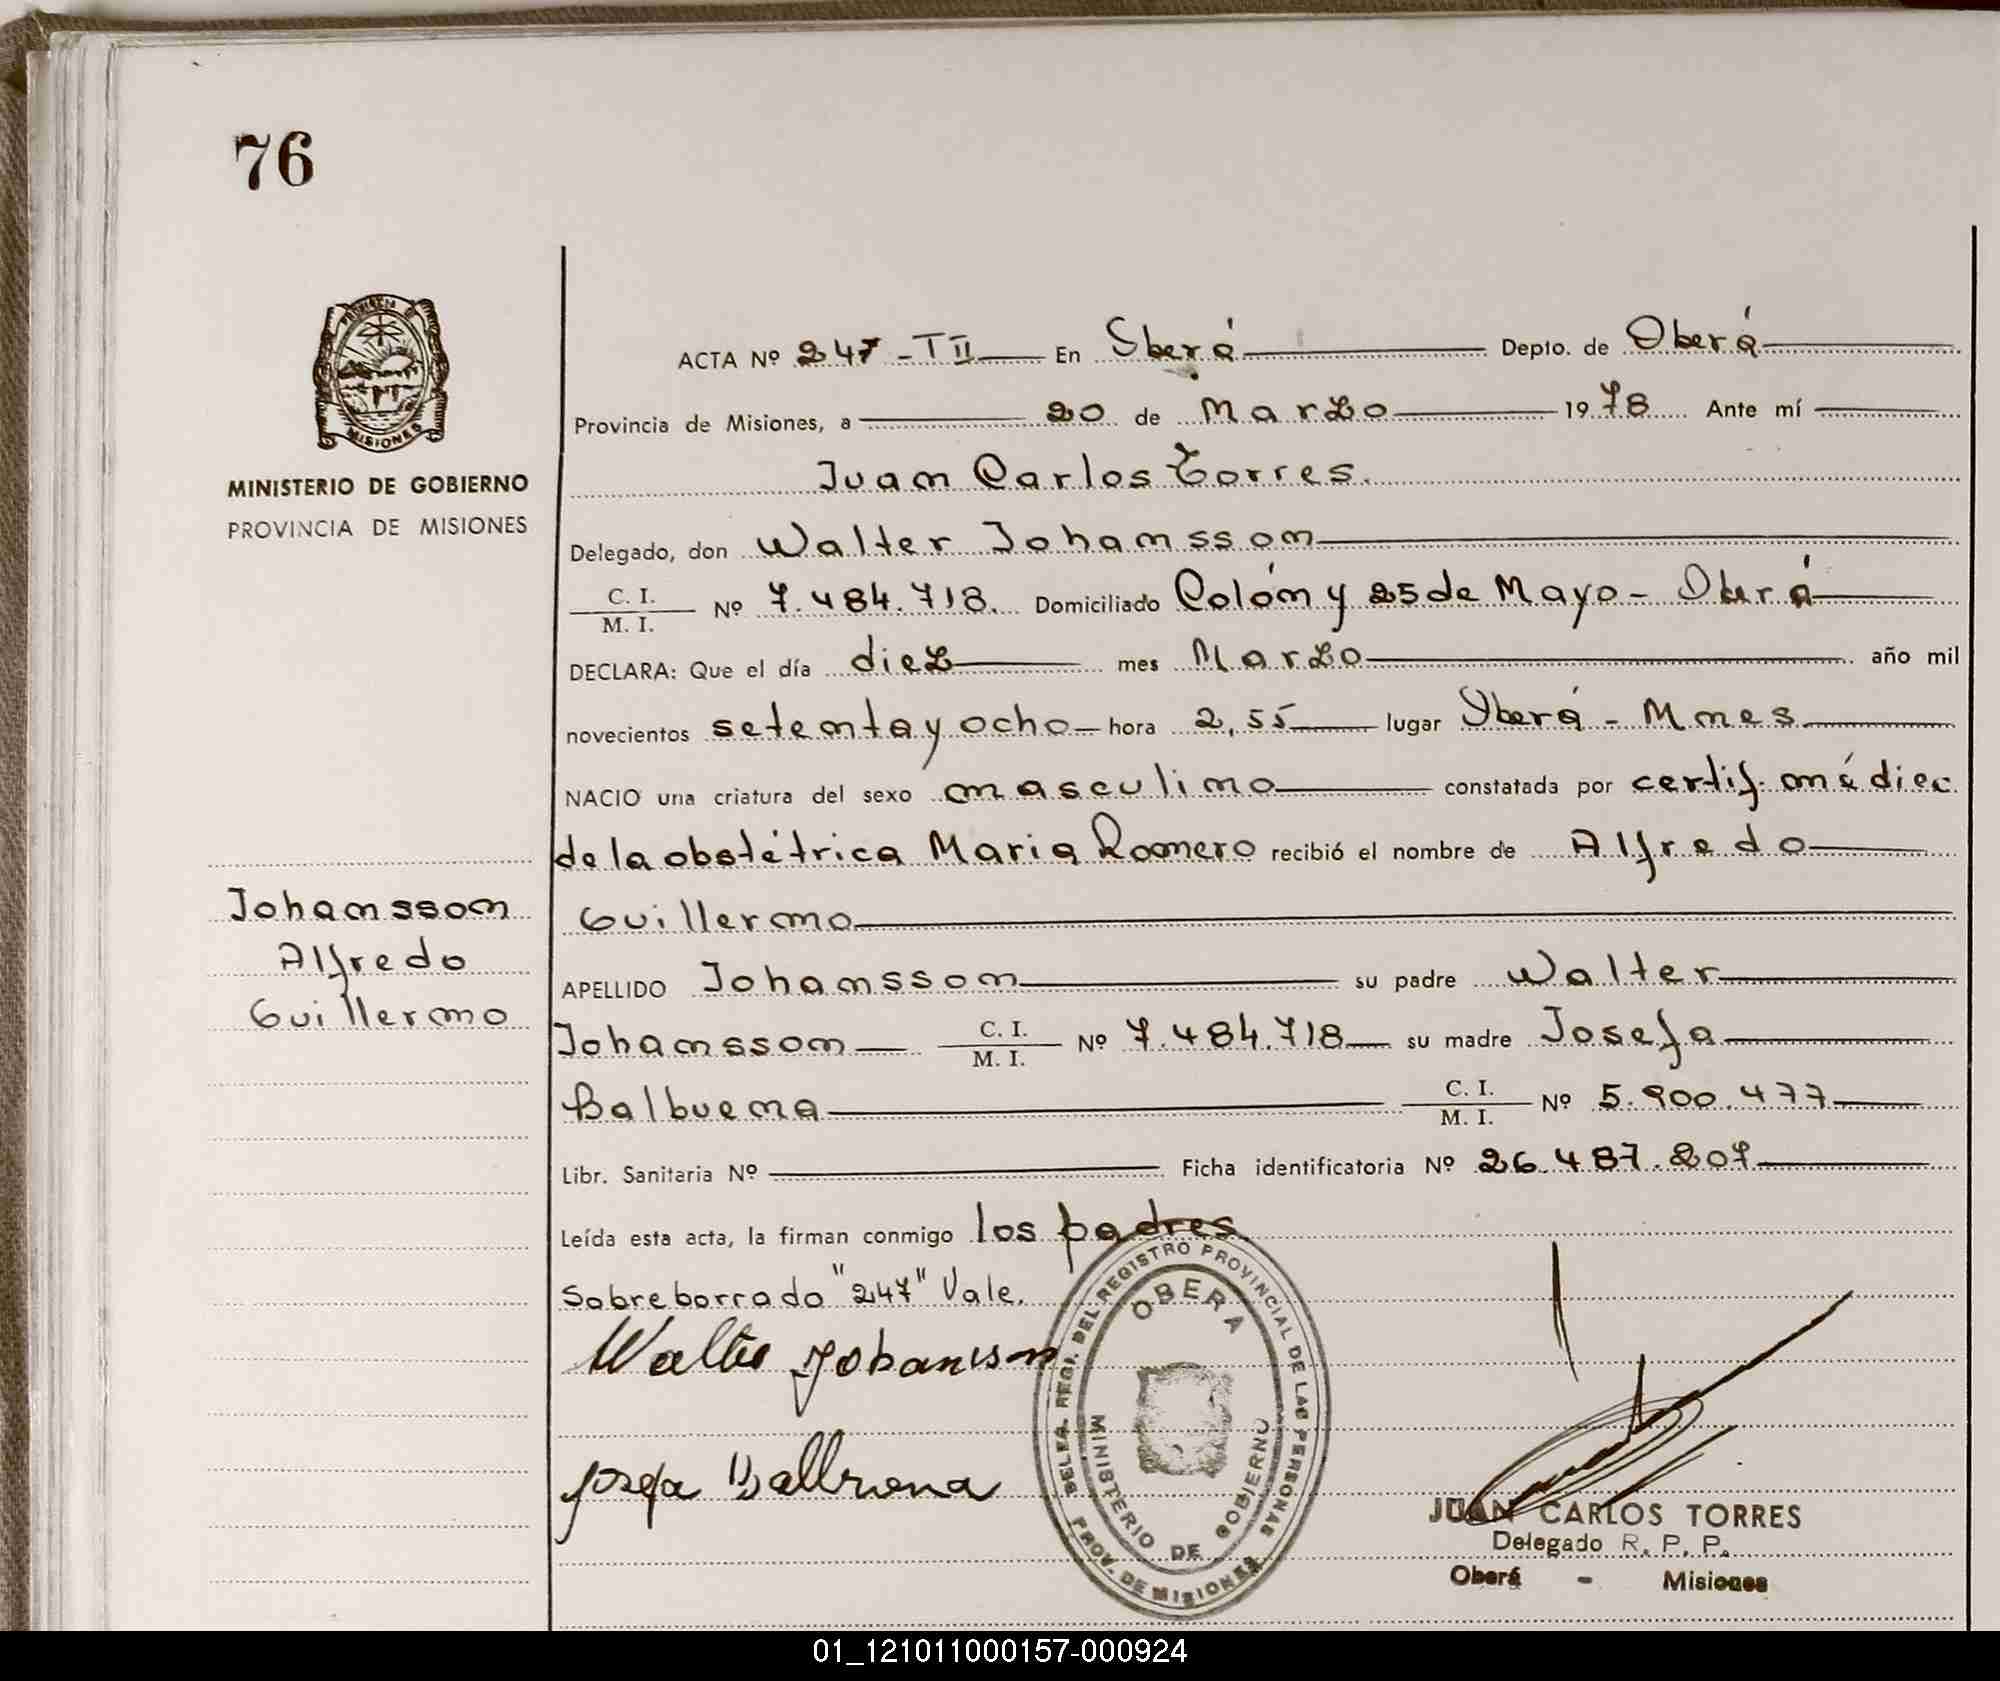 76
PROVINCIA DE
MISIONES
MINISTERIO DE GOBIERNO
PROVINCIA DE MISIONES
ACTA Nº 247 - T II En Oberá Depto. de Oberá
Provincia de Misiones, a 20 de Marzo 1978 Ante mí
Juan Carlos Torres.
Delegado, don Walter Johansson
C. I.
M. I. Nº 7.484.718. Domiciliado Colón y 25 de Mayo - Oberá
DECLARA: Que el día diez mes Marzo año mil
novecientos setenta y ocho hora 2,55 lugar Oberá - Mnes
NACIO una criatura del sexo masculino constatada por certif. médic
de la obstétrica Maria Romero recibió el nombre de Alfredo
Guillermo
Johansson
Alfredo
Guillermo
APELLIDO Johansson su padre Walter
Johansson C. I. M. I. Nº 7.484.718 su madre Josefa
Balbuena C. I. M. I. Nº 5.900.477
Libr. Sanitaria Nº Ficha identificatoria Nº 26.487.207
Leída esta acta, la firman conmigo los padres.
Sobreborrado "247" Vale.
Walter Johansson
Josefa Balbuena
DELEG. REGI. DEL REGISTRO PROVINCIAL DE LAS PERSONAS
OBERA
MINISTERIO DE GOBIERNO
PROV. DE MISIONES
JUAN CARLOS TORRES
Delegado R. P. P.
Oberá - Misiones
01_121011000157-000924